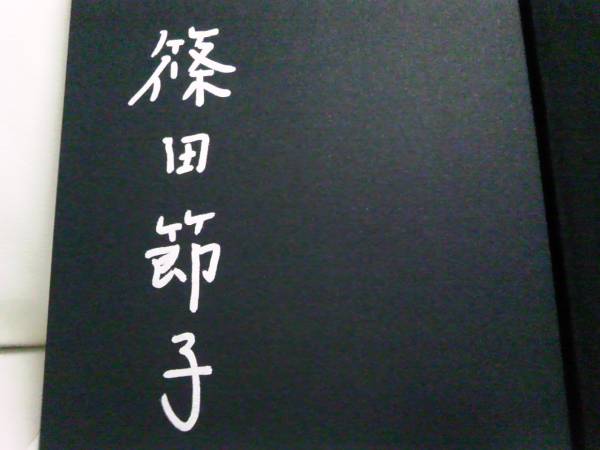 篠田節子